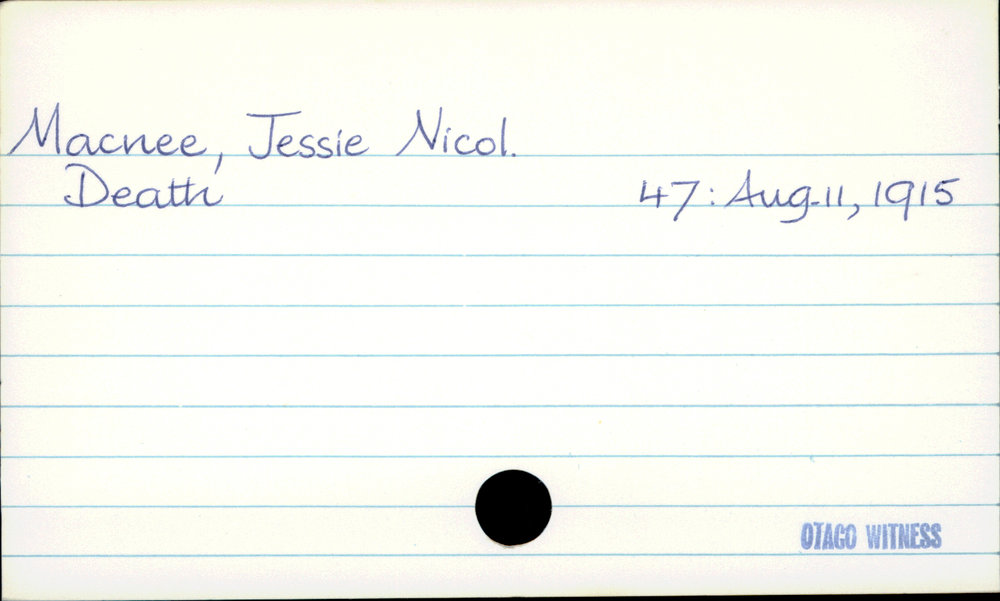 Macnee, Jessie Nicol.
Death 47: Aug. 11, 1915
OTAGO WITNESS